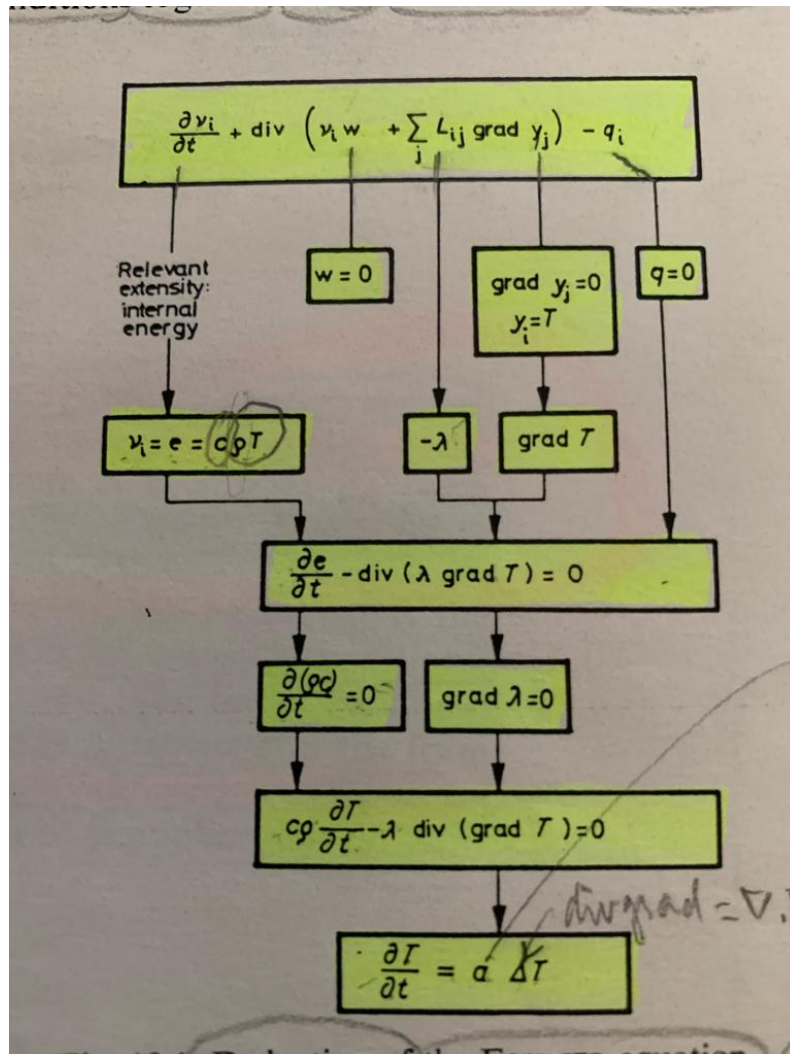 ∂νᵢ/∂t + div (νᵢ w + ∑ⱼ Lᵢⱼ grad yⱼ) - qᵢ
Relevant
extensity:
internal
energy
w = 0
grad yⱼ=0
yᵢ=T
q=0
νᵢ = e = cρT
-λ
grad T
∂e/∂t - div (λ grad T) = 0
∂(ρc)/∂t = 0
grad λ=0
cρ ∂T/∂t - λ div (grad T) = 0
div grad = ∇.
∂T/∂t = a ΔT